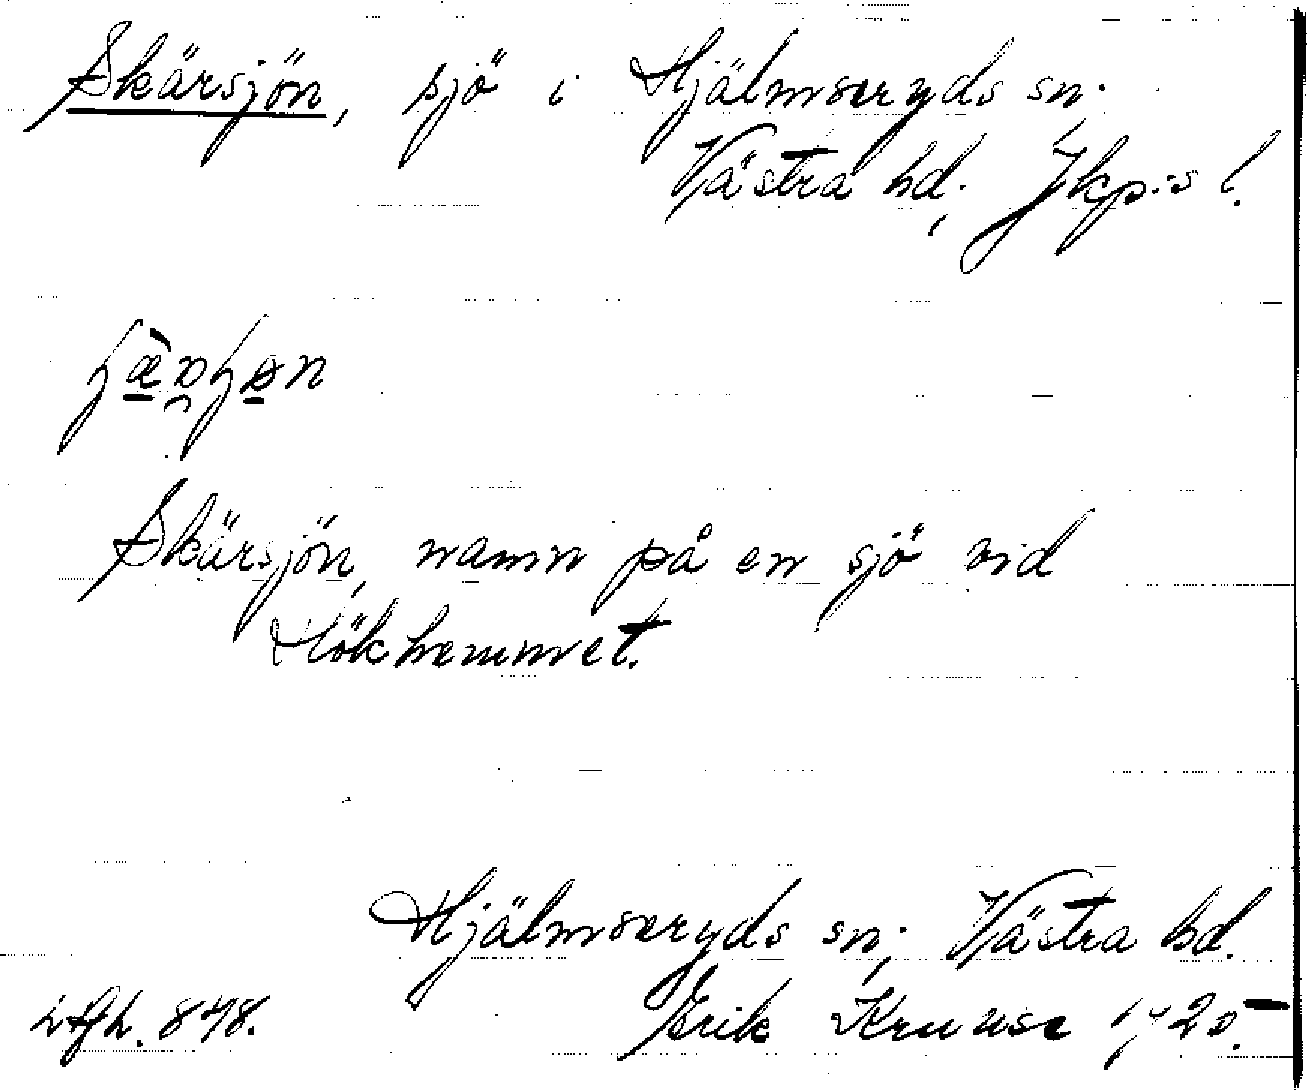 Skärsjön, sjö i Hjälmseryds sn.
Västra hd, Jkp:s l.
Skärsjön, namn på en sjö vid
Hökhemmet.
Hjälmseryds sn; Västra hd.
Erik Kruuse